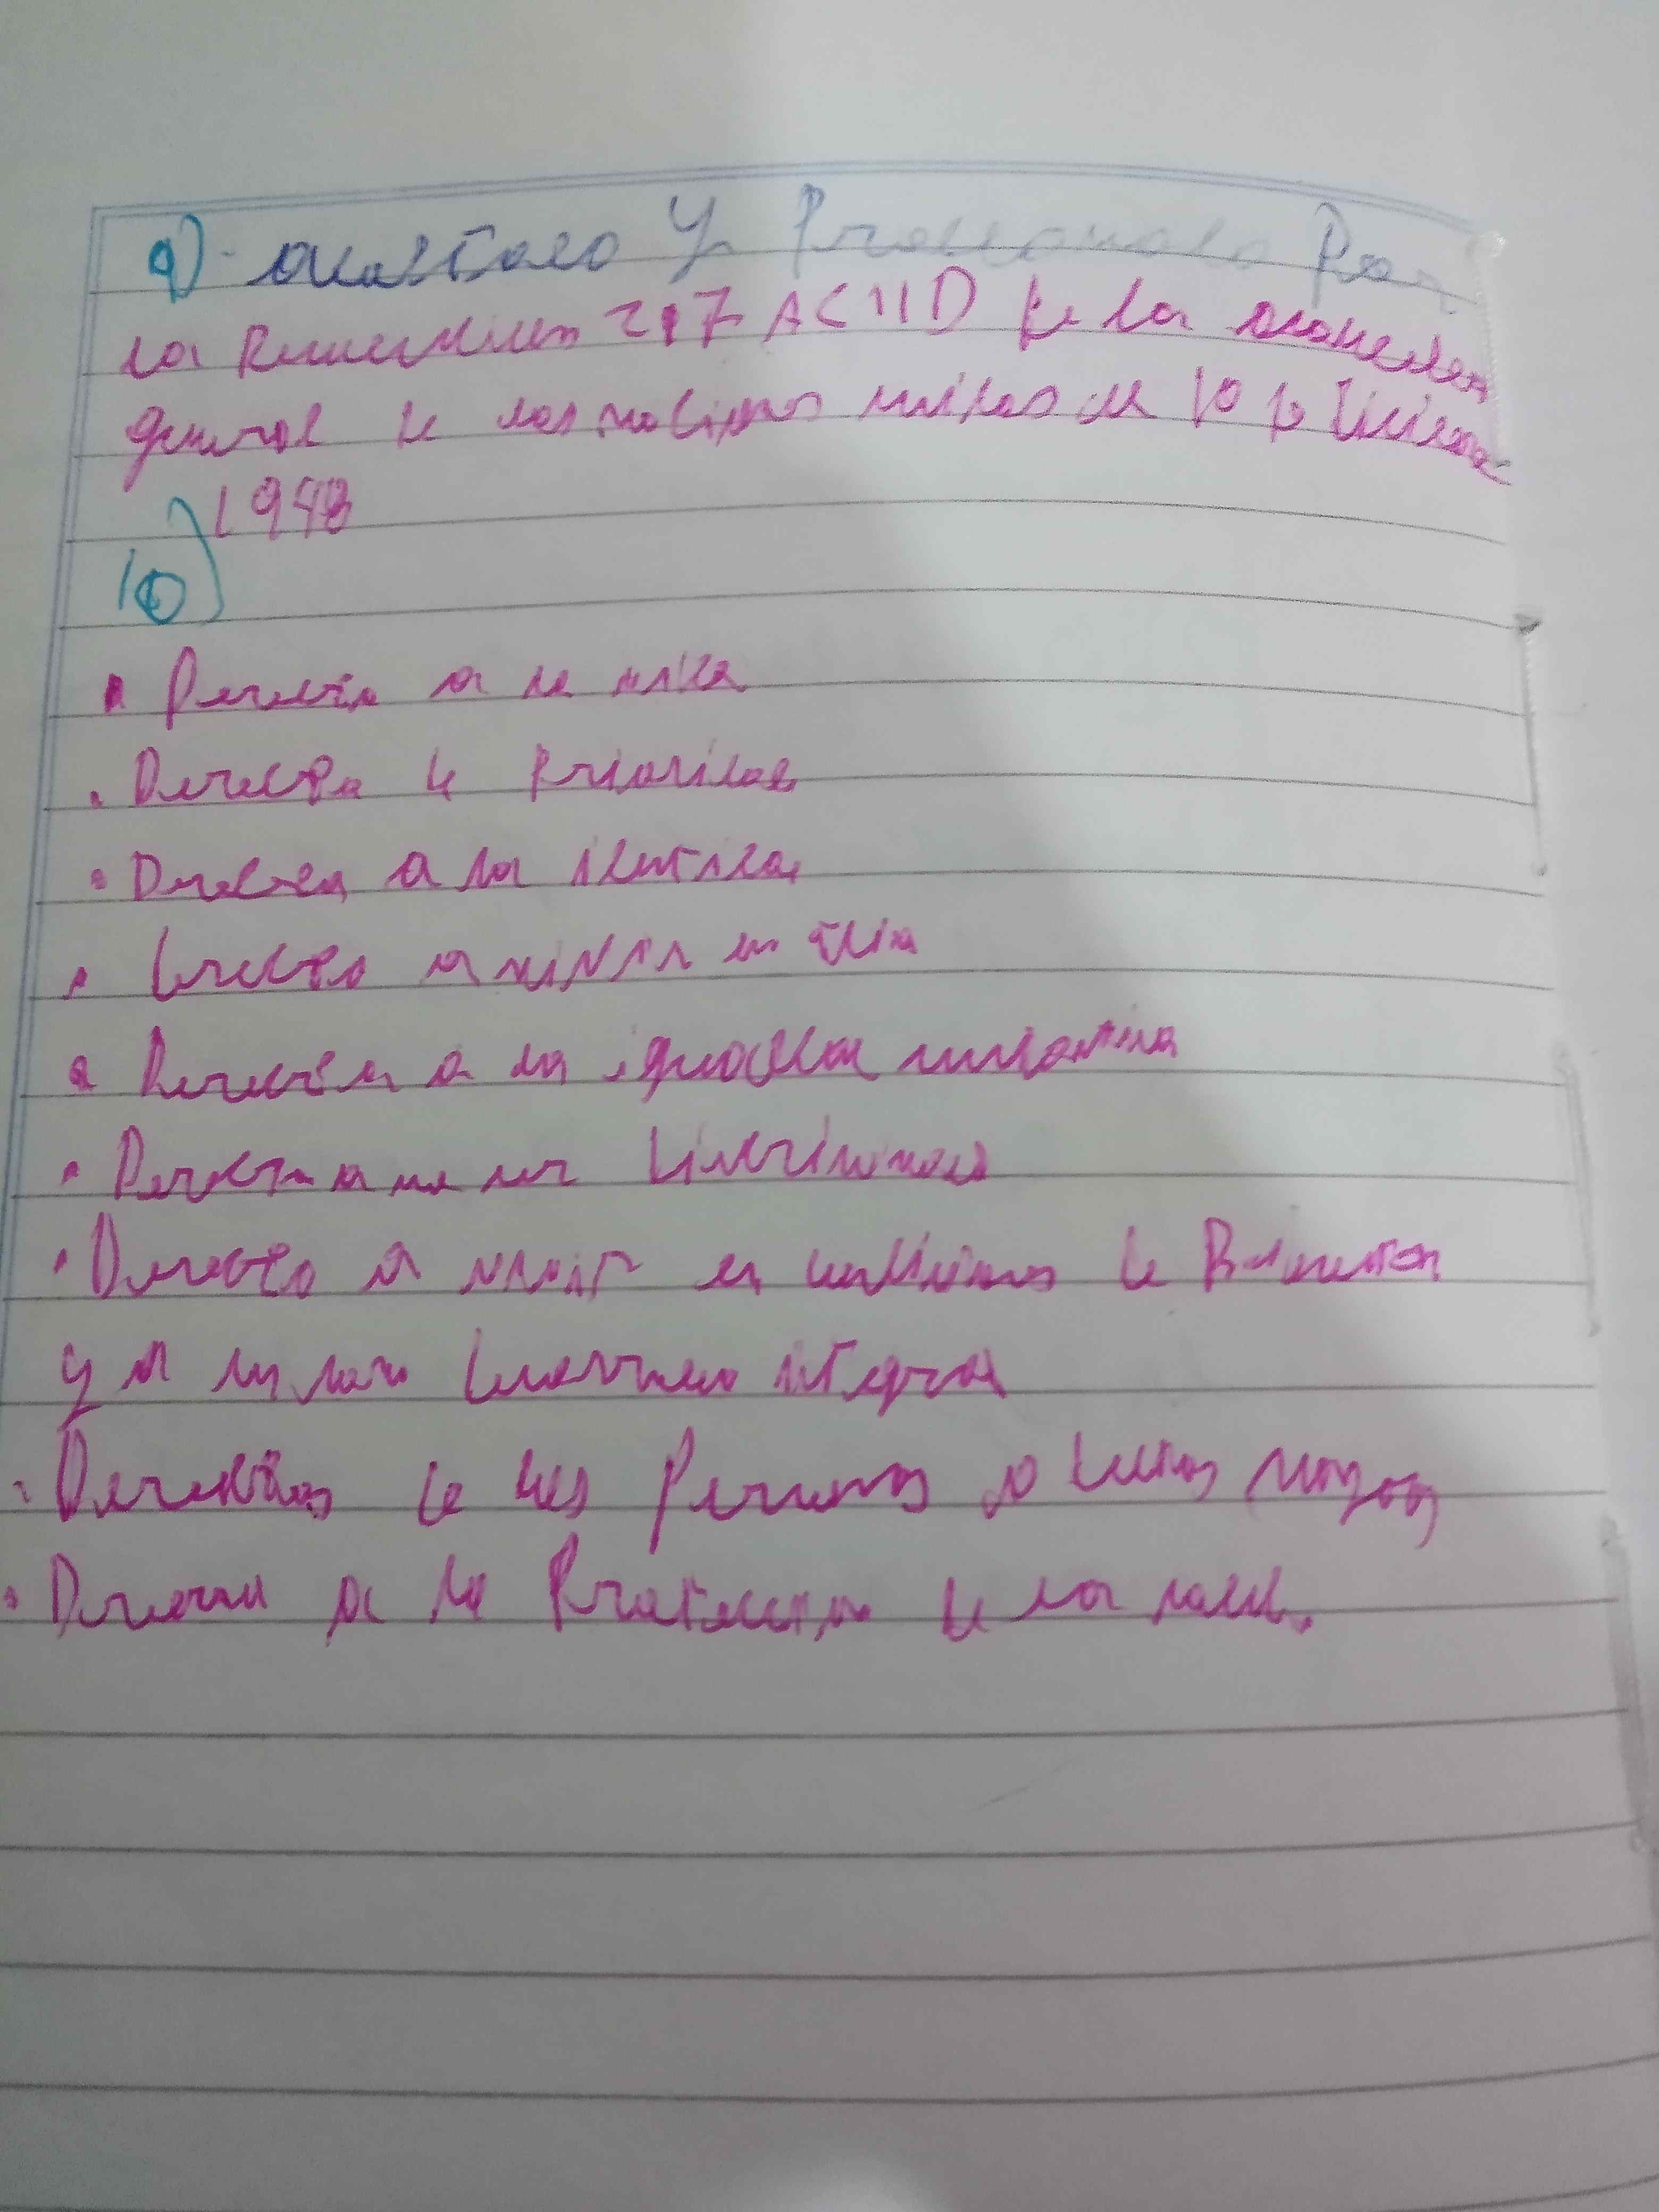 9)- y Proclamada Por
la Resolucion 217 A (III) de la
general de las naciones unidas del 10 de
1948
10)
• Derecho a la vida
• Derecho de Prioridad
• Derecho a la identidad
• Derecho a vivir en
• Derecho a la igualdad sustantiva
• Derecho a no ser discriminado
• Derecho a vivir en condiciones de Bienestar
y a un sano desarrollo integral
• Derechos de las Personas adultas mayores
• Derecho a la Proteccion de la salud.